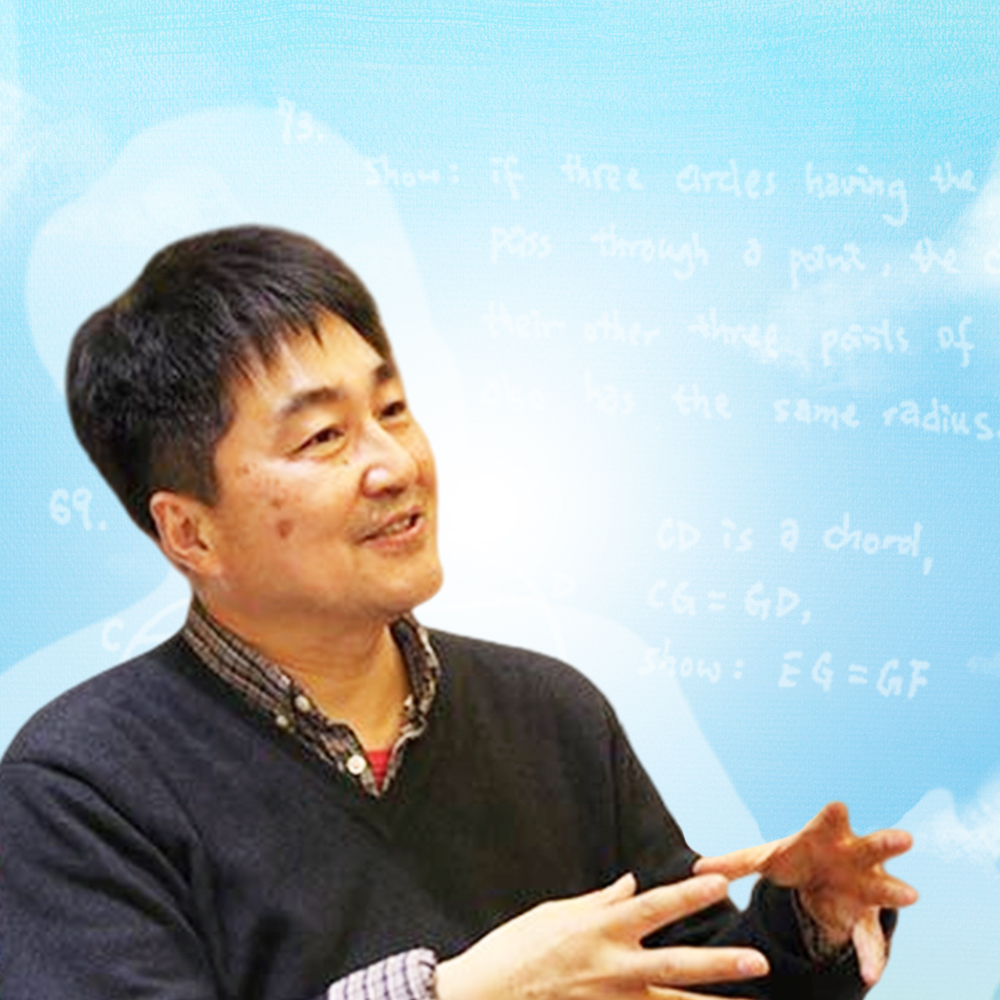 73.
Show: if three circles having the
pass through a point, the c
their other three points of
also has the same radius.
69.
CD is a chord,
CG = GD,
C
D
Show: EG = GF